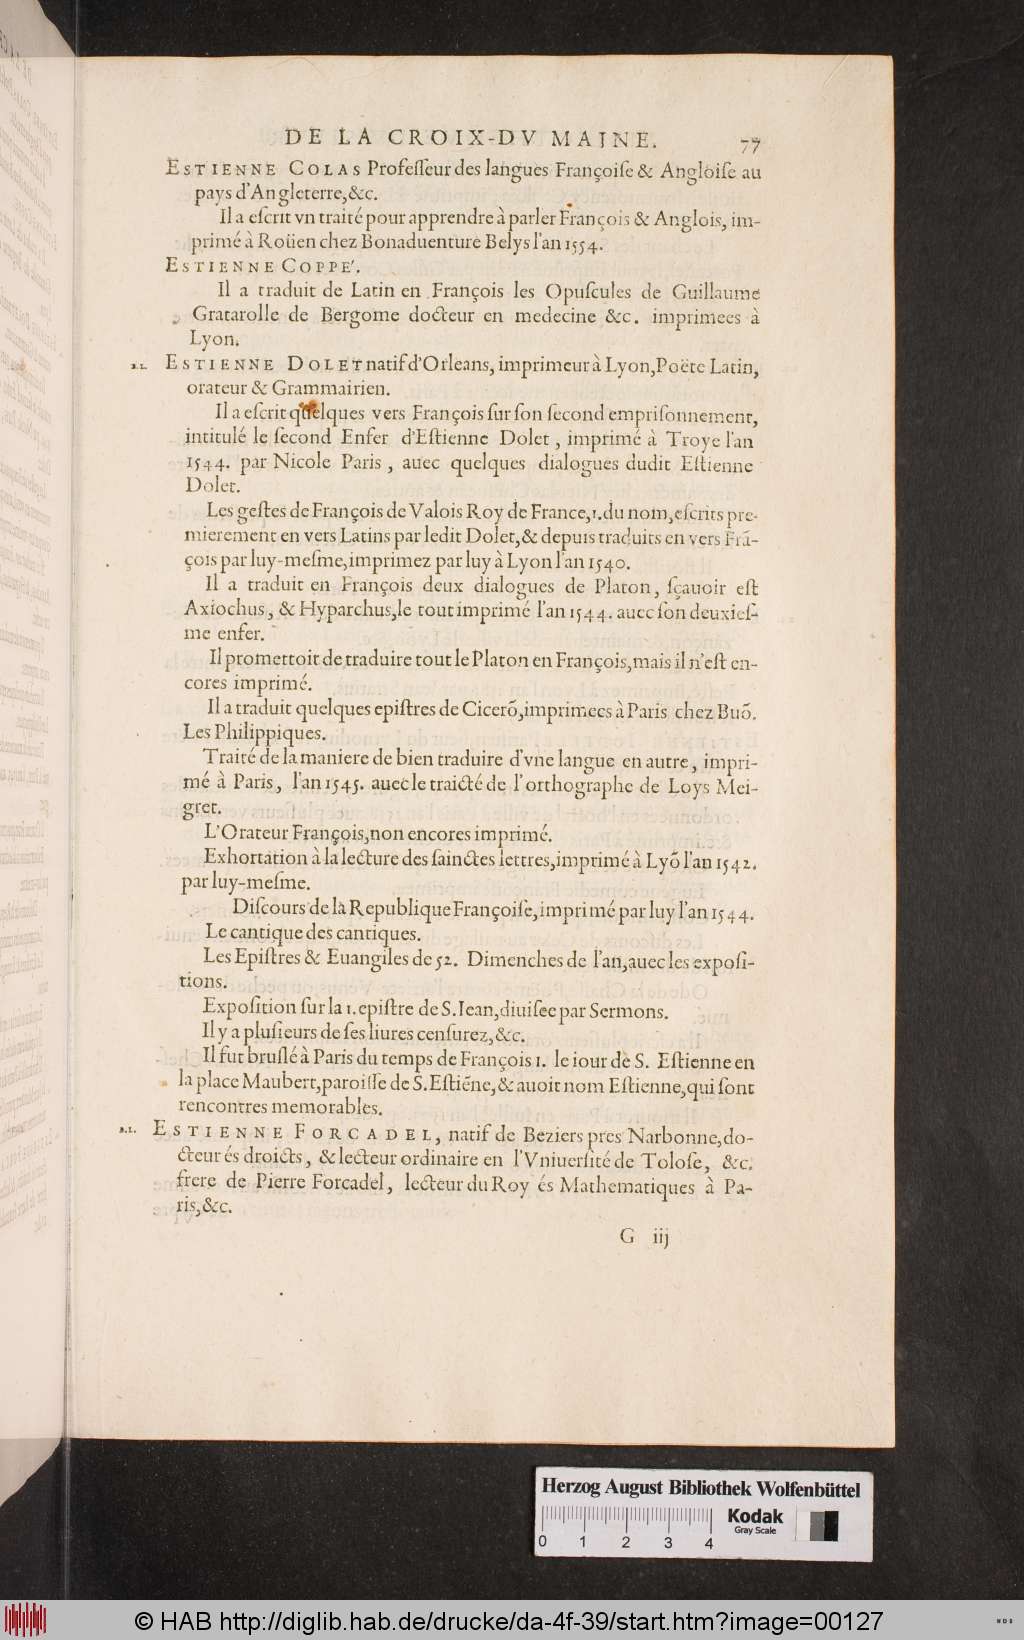 DE LA CROIX-DV MAINE. 77
ESTIENNE COLAS Profeſſeur des langues Françoiſe & Angloiſe au
pays d'Angleterre,&c.
Il a eſcrit vn traité pour apprendre à parler François & Anglois, im-
primé à Roüen chez Bonaduenture Belys l'an 1554.
ESTIENNE COPPE'.
Il a traduit de Latin en François les Opuſcules de Guillaume
Gratarolle de Bergome docteur en medecine &c. imprimees à
Lyon.
ESTIENNE DOLET natif d'Orleans, imprimeur à Lyon,Poëte Latin,
orateur & Grammairien.
Il a eſcrit quelques vers François ſur ſon ſecond empriſonnement,
intitulé le ſecond Enfer d'Eſtienne Dolet, imprimé à Troye l'an
1544. par Nicole Paris, auec quelques dialogues dudit Eſtienne
Dolet.
Les geſtes de François de Valois Roy de France,1.du nom,eſcrits pre-
mierement en vers Latins par ledit Dolet,& depuis traduits en vers Frã-
çois par luy-meſme,imprimez par luy à Lyon l'an 1540.
Il a traduit en François deux dialogues de Platon, ſçauoir eſt
Axiochus, & Hyparchus,le tout imprimé l'an 1544. auec ſon deuxieſ-
me enfer.
Il promettoit de traduire tout le Platon en François,mais il n'eſt en-
cores imprimé.
Il a traduit quelques epiſtres de Cicerõ,imprimees à Paris chez Buõ.
Les Philippiques.
Traité de la maniere de bien traduire d'vne langue en autre, impri-
mé à Paris, l'an 1545. auec le traicté de l'orthographe de Loys Mei-
gret.
L'Orateur François,non encores imprimé.
Exhortation à la lecture des ſainctes lettres,imprimé à Lyõ l'an 1542.
par luy-meſme.
Diſcours de la Republique Françoiſe,imprimé par luy l'an 1544.
Le cantique des cantiques.
Les Epiſtres & Euangiles de 52. Dimenches de l'an,auec les expoſi-
tions.
Expoſition ſur la 1. epiſtre de S. Iean,diuiſee par Sermons.
Il y a pluſieurs de ſes liures cenſurez,&c.
Il fut bruſlé à Paris du temps de François 1. le iour de S. Eſtienne en
la place Maubert,paroiſſe de S. Eſtiẽne,& auoit nom Eſtienne,qui ſont
rencontres memorables.
ESTIENNE FORCADEL, natif de Beziers pres Narbonne,do-
cteur és droicts, & lecteur ordinaire en l'Vniuerſité de Toloſe, &c.
frere de Pierre Forcadel, lecteur du Roy és Mathematiques à Pa-
ris,&c.
G iij
Herzog August Bibliothek Wolfenbüttel
0 1 2 3 4
Kodak
Gray Scale
© HAB http://diglib.hab.de/drucke/da-4f-39/start.htm?image=00127